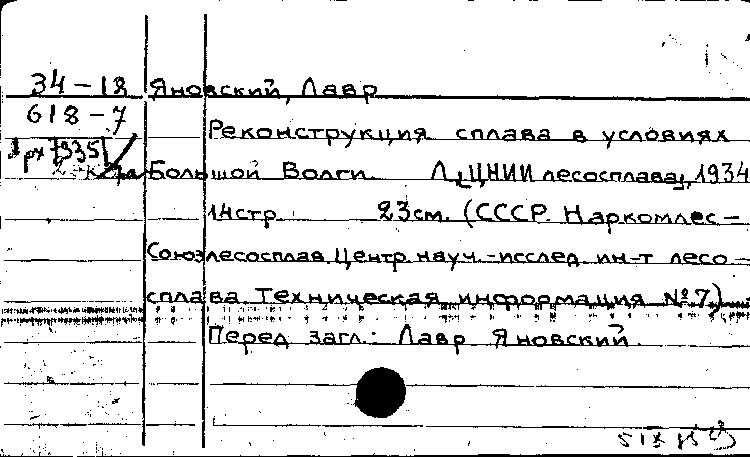 34-18 Яновский, Лавр
618-7
Реконструкция сплава в условиях
Большой Волги. Л., ЦНИИ лесосплава, 1934
14стр. 23см. (СССР. Наркомлес-
Союзлесосплав. Центр. науч.-исслед. ин-т лесо-
сплава. Техническая информация №7)
Перед загл.: Лавр Яновский.